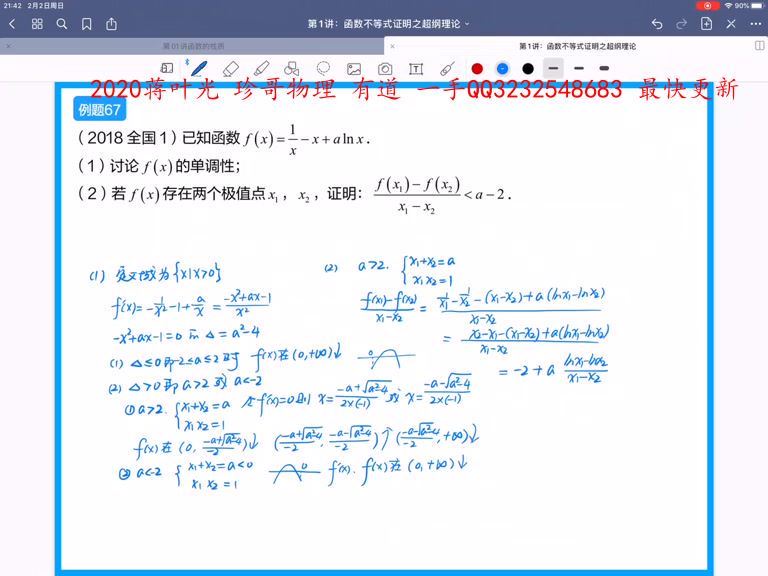 21:42 2月2日周日
90%
第1讲：函数不等式证明之超纲理论
第01讲函数的性质
第1讲：函数不等式证明之超纲理论
2020蒋叶光 珍哥物理 有道 一手QQ3232548683 最快更新
例题67
（2018 全国1）已知函数 f(x)=1/x-x+a ln x.
（1）讨论 f(x) 的单调性；
（2）若 f(x) 存在两个极值点 x₁，x₂，证明：(f(x₁)-f(x₂))/(x₁-x₂)<a-2.
(1) 定义域为{x|x>0}
f'(x)=-1/x²-1+a/x=(-x²+ax-1)/x²
-x²+ax-1=0 △=a²-4
(1) △≤0即-2≤a≤2时 f(x)在(0,+∞)↓
(2) △>0即a>2或a<-2
① a>2. {x₁+x₂=a 令f'(x)=0则 x=(-a+√(a²-4))/(2×(-1))或x=(-a-√(a²-4))/(2×(-1))
x₁x₂=1
f(x)在(0,(-a+√(a²-4))/-2)↓ ((-a+√(a²-4))/-2,(-a-√(a²-4))/-2)↑((-a-√(a²-4))/-2,+∞)↓
② a<-2 {x₁+x₂=a<0 0 f'(x). f(x)在(0,+∞)↓
x₁x₂=1
(2) a>2. {x₁+x₂=a
x₁x₂=1
(f(x₁)-f(x₂))/(x₁-x₂)=(1/x₁-1/x₂-(x₁-x₂)+a(lnx₁-lnx₂))/(x₁-x₂)
=(x₂-x₁-(x₁-x₂)+a(lnx₁-lnx₂))/(x₁-x₂)
0
=-2+a (lnx₁-lnx₂)/(x₁-x₂)